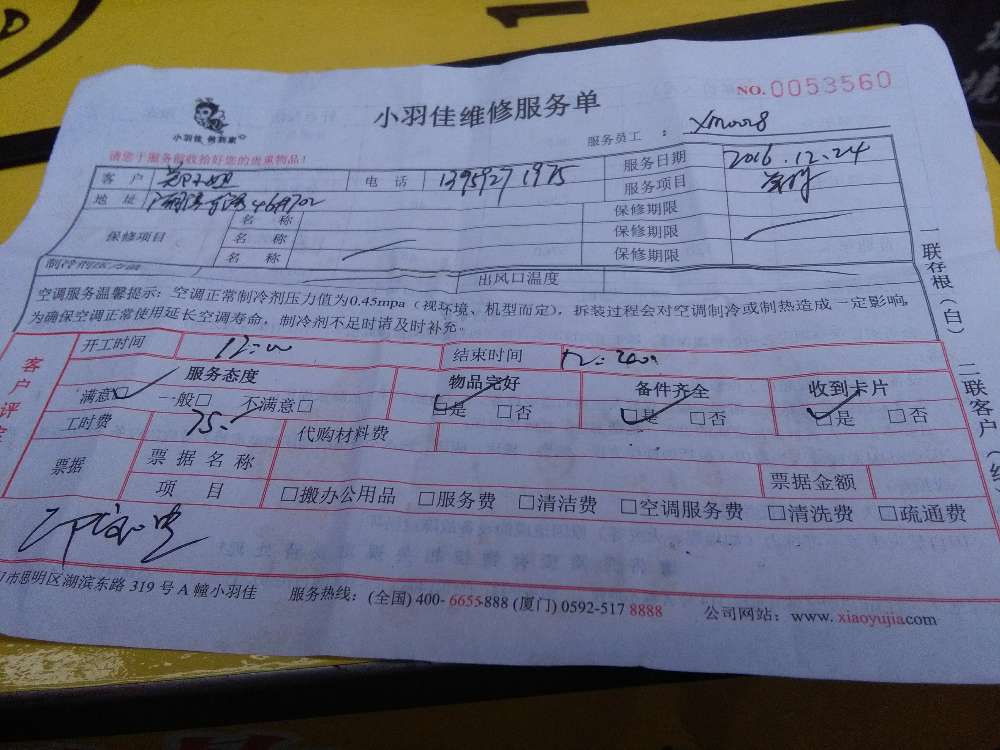 NO.0053560
小羽佳维修服务单
小羽佳
服务员工 : xm008
请您于服务前收拾好您的贵重物品!
客户 电话 13959271975 服务日期 2016.12.24
服务项目
地址
保修项目 名称 保修期限
名称 保修期限
名称 保修期限
制冷剂压力值 出风口温度
空调服务温馨提示:空调正常制冷剂压力值为0.45mpa(视环境、机型而定),拆装过程会对空调制冷或制热造成一定影响,
为确保空调正常使用延长空调寿命,制冷剂不足时请及时补充。
一联存根(白)
二联客户(
客户评
开工时间 12:00 结束时间
服务态度 物品完好 备件齐全 收到卡片
满意□ 一般□ 不满意□ □是 □否 □是 □否 □是 □否
工时费 75.- 代购材料费
票据 票据名称 票据金额
项目 □搬办公用品 □服务费 □清洁费 □空调服务费 □清洗费 □疏通费
市思明区湖滨东路 319 号 A 幢小羽佳 服务热线:(全国) 400- 6655-888 (厦门) 0592-517 8888 公司网站:www. xiaoyujia.com